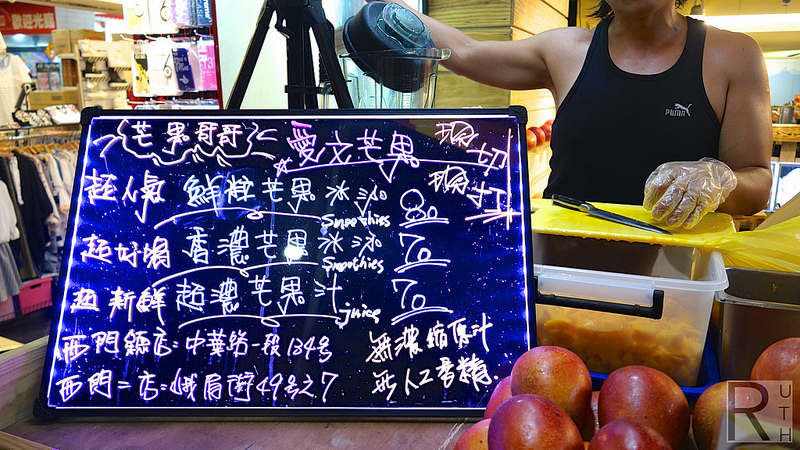 歡迎光臨
芒果哥哥 愛文芒果 現切
現打
超人氣 鮮粒芒果冰冰 80
Smoothies
超好喝 香濃芒果冰冰 70
Smoothies
超新鮮 超濃芒果汁 70
juice
西門 店:中華路一段134號 無濃縮原汁
西門二店:峨眉街49号之7 無人工香精.
PUMA
RUTH